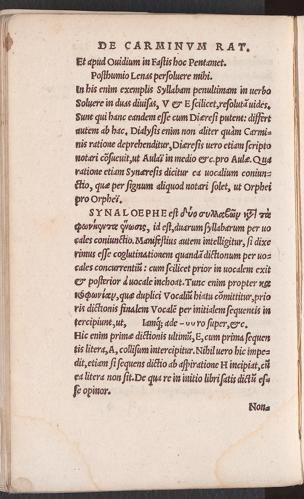 DE CARMINVM RAT.
Et apud Ouidium in Fastis hoc Pentamet.
Posthumio Lenas persoluere mihi.
In his enim exemplis Syllabam penultimam in uerbo
Soluere in duas diuisas, V & E scilicet, resolutā uides.
Sunt qui hanc eandem esse cum Diæresi putent: differt
autem ab hac, Dialysis enim non aliter quàm Carmi-
nis ratione deprehenditur, Diæresis uero etiam scripto
notari cōsueuit, ut Aulaï in medio & c. pro Aulæ. Qua
ratione etiam Synæresis dicitur ea uocalium coniun-
ctio, quæ per signum aliquod notari solet, ut Orphei
pro Orpheï.
SYNALOEPHE est δύο συλλαβῶν κỳ τὰ
φωνήεντα ἕνωσις, id est, duarum syllabarum per uo
cales coniunctio. Manifestius autem intelligitur, si dixe
rimus esse coglutinationem quandā dictionum per uo-
cales concurrentiū: cum scilicet prior in uocalem exit
& posterior à uocale inchoat. Tunc enim propter κα
κόφωνίαν, quæ duplici Vocaliū hiatu cōmittitur, prio
ris dictionis finalem Vocalē per initialem sequentis in
tercipiunt, ut, Iamq; ade -uuro super, &c.
Hic enim primæ dictionis ultimū, E, cum prima sequen
tis litera, A, collisum intercipitur. Nihil uero hic impe-
dit, etiam si sequens dictio ab aspiratione H incipiat, cū
ea litera non sit. De qua re in initio libri satis dictū es-
se opinor.
Non-